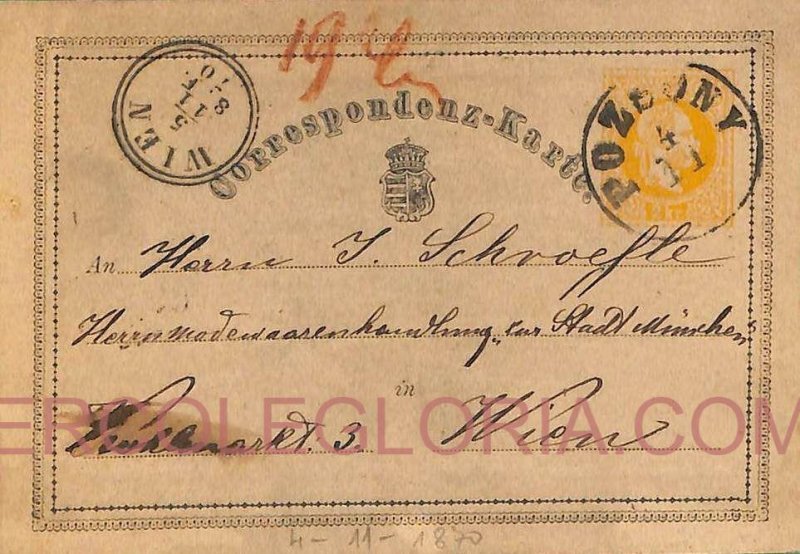 19
WIEN
5
11
870
Correspondenz-Karte.
POZSONY
4
11
2 Kr.
An Herrn J. Schroefle
Herrnmodewaarenhandlung „zur Stadt München"
in
3. Wien
ERCOLEGLORIA.COM
4-11-1870